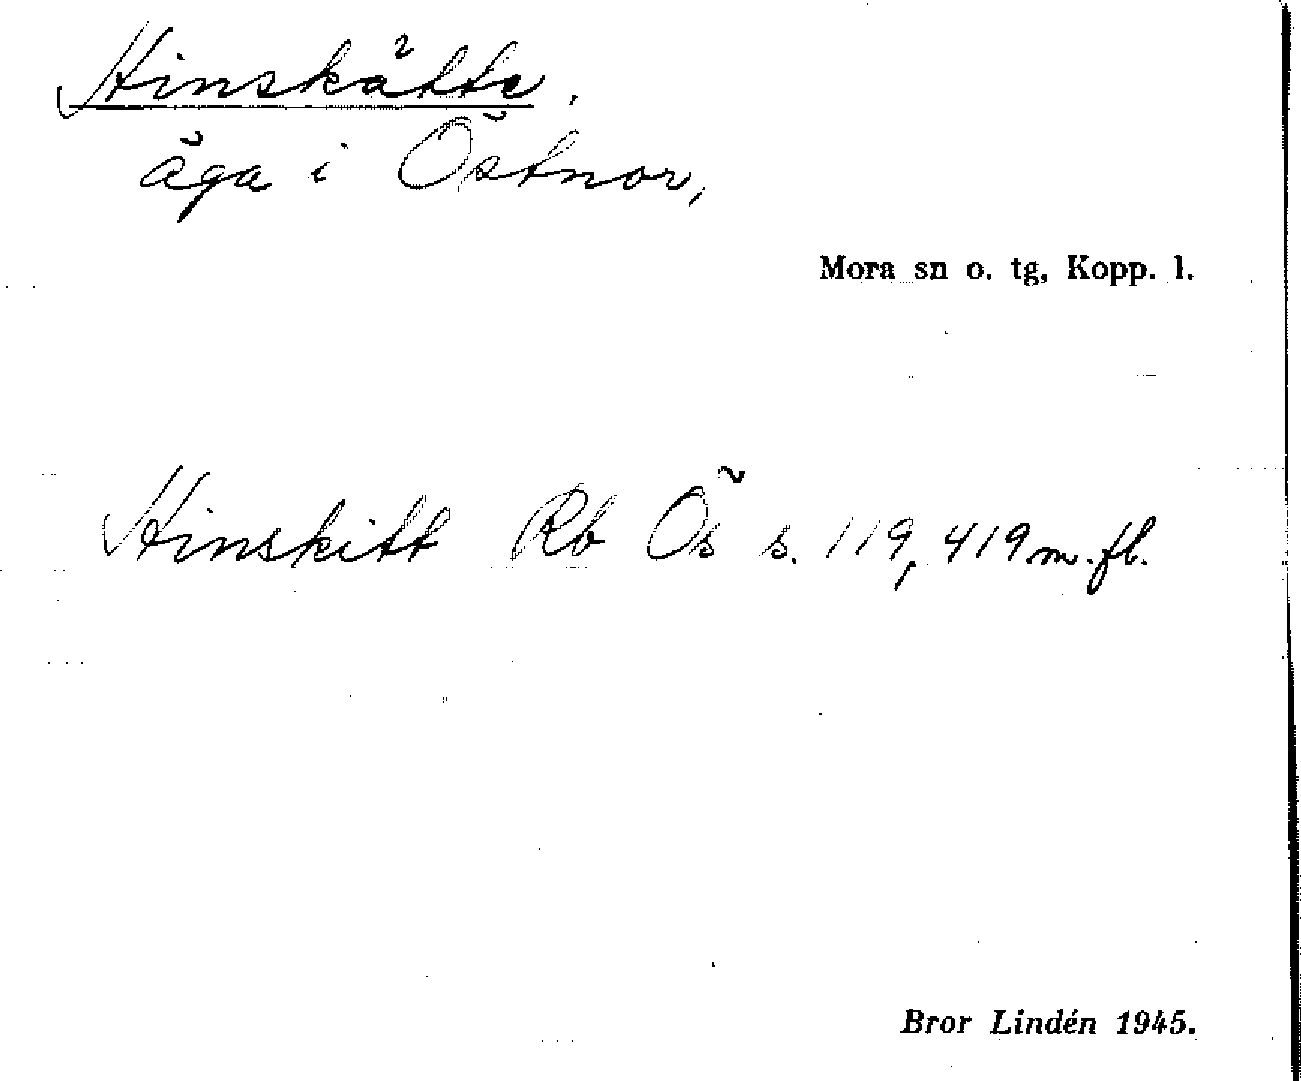 Hinskätte,
äga i Östnor,
Mora sn o. tg, Kopp. l.
Hinskitt Rb Ös s. 119, 419 m. fl.
Bror Lindén 1945.